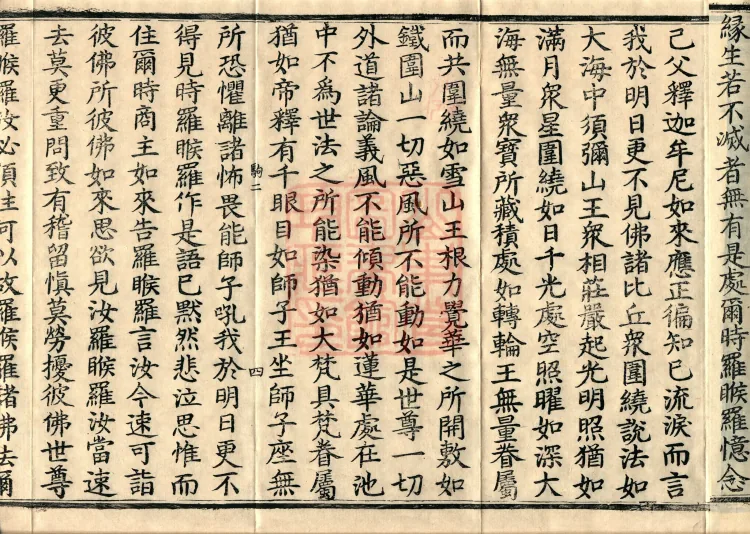 緣生若不滅者無有是處爾時羅睺羅憶念
己父釋迦牟尼如來應正徧知已流淚而言
我於明日更不見佛諸比丘衆圍繞說法如
大海中須彌山王衆相莊嚴起光明照猶如
滿月衆星圍繞如日千光處空照曜如深大
海無量衆寶所藏積處如轉輪王無量眷屬
而共圍繞如雪山王根力覺華之所開敷如
鐵圍山一切惡風所不能動如是世尊一切
外道諸論義風不能傾動猶如蓮華處在池
中不爲世法之所能染猶如大梵具梵眷屬
猶如帝釋有千眼目如師子王坐師子座無
駒二 四
所恐懼離諸怖畏能師子吼我於明日更不
得見時羅睺羅作是語已默然悲泣思惟而
住爾時商主如來告羅睺羅言汝今速可詣
彼佛所彼佛如來思欲見汝羅睺羅汝當速
去莫更重問致有稽留愼莫勞擾彼佛世尊
羅睺羅汝必須往可以故羅睺羅諸佛去爾